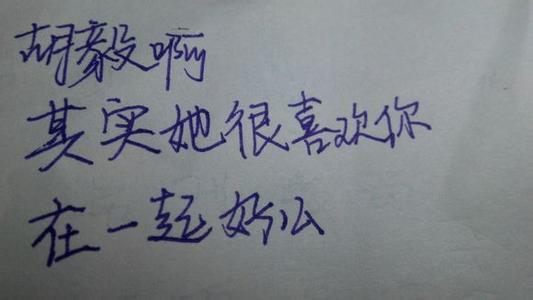 胡毅啊
其实她很喜欢你
在一起好么